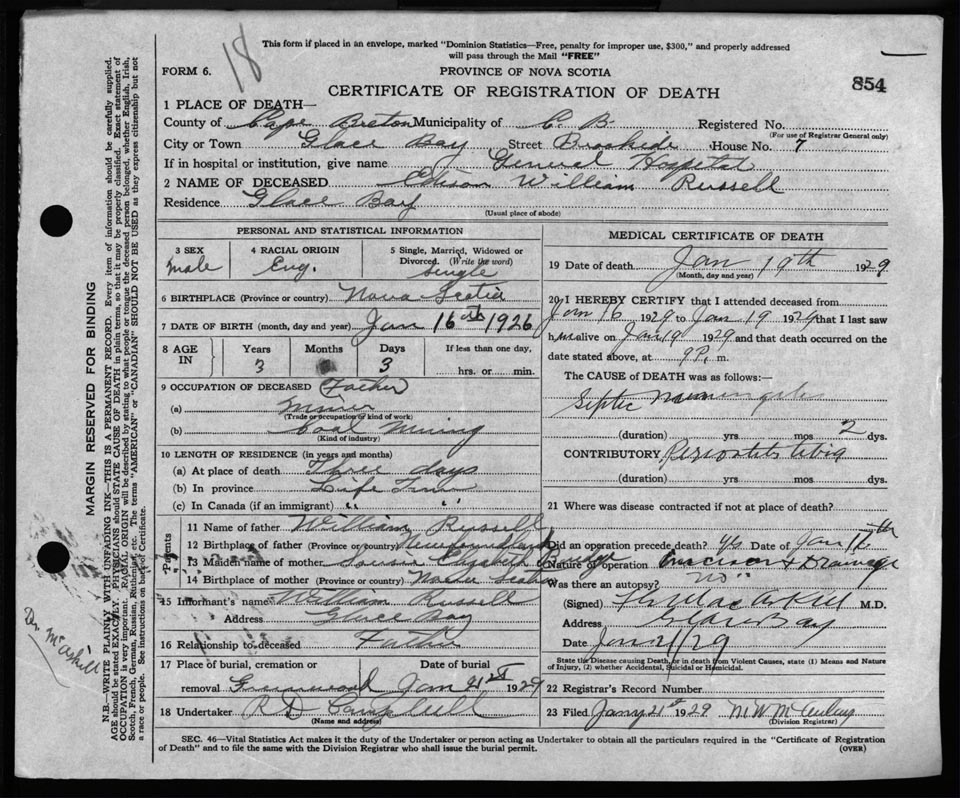 This form if placed in an envelope, marked "Dominion Statistics—Free, penalty for improper use, $300," and properly addressed
will pass through the Mail "FREE"
18
FORM 6.
PROVINCE OF NOVA SCOTIA
CERTIFICATE OF REGISTRATION OF DEATH
854
1 PLACE OF DEATH—
County of Cape Breton Municipality of C. B. Registered No.
(For use of Registrar General only)
City or Town Glace Bay Street Brookside House No. 7
If in hospital or institution, give name General Hospital
2 NAME OF DECEASED Edison William Russell
Residence Glace Bay
(Usual place of abode)
PERSONAL AND STATISTICAL INFORMATION
3 SEX
male
4 RACIAL ORIGIN
Eng.
5 Single, Married, Widowed or
Divorced. (Write the word)
Single
6 BIRTHPLACE (Province or country) Nova Scotia
7 DATE OF BIRTH (month, day and year) Jan 16th 1926
8 AGE IN
Years Months Days If less than one day,
3 3 hrs. or min.
9 OCCUPATION OF DECEASED (Father)
(a) Miner
(Trade or occupation or kind of work)
(b) Coal Mining
(Kind of industry)
10 LENGTH OF RESIDENCE (in years and months)
(a) At place of death Three days
(b) In province Life Time
(c) In Canada (if an immigrant) " "
Parents
11 Name of father William Russell
12 Birthplace of father (Province or country) Newfoundland
13 Maiden name of mother Elizabeth
14 Birthplace of mother (Province or country) Nova Scotia
15 Informant's name William Russell
Address Glace Bay
16 Relationship to deceased Father
17 Place of burial, cremation or Date of burial
removal Greenwood Jan 21st 1929
18 Undertaker R D Campbell
(Name and address)
MEDICAL CERTIFICATE OF DEATH
19 Date of death Jan 19th 1929
(Month, day and year)
20 I HEREBY CERTIFY that I attended deceased from
Jan 16 1929 to Jan 19 1929 that I last saw
him alive on Jan 19 1929 and that death occurred on the
date stated above, at 9 P. m.
The CAUSE of DEATH was as follows:—
Septic Meningitis
(duration) yrs mos 2 dys.
CONTRIBUTORY Periostitis tibia
(duration) yrs mos dys.
21 Where was disease contracted if not at place of death?
Did an operation precede death? yes Date of Jan 17th
Nature of operation Incision & Drainage
Was there an autopsy? no
(Signed) M.D.
Address Glace Bay
Date Jan 21/29
State the Disease causing Death, or in death from Violent Causes, state (1) Means and Nature
of Injury, (2) whether Accidental, Suicidal or Homicidal.
22 Registrar's Record Number
23 Filed Jany 21st 1929
(Division Registrar)
SEC. 46—Vital Statistics Act makes it the duty of the Undertaker or person acting as Undertaker to obtain all the particulars required in the "Certificate of Registration
of Death" and to file the same with the Division Registrar who shall issue the burial permit.
(OVER)
MARGIN RESERVED FOR BINDING
N.B.—WRITE PLAINLY WITH UNFADING INK—THIS IS A PERMANENT RECORD. Every item of information should be carefully supplied.
AGE should be stated EXACTLY. PHYSICIANS should STATE CAUSE OF DEATH in plain terms, so that it may be properly classified. Exact statement of
OCCUPATION is very important. RACIAL ORIGIN will be described by stating to what people or tongue the deceased person belonged, whether English, Irish,
Scotch, French, German, Russian, Ruthenian, etc. The terms "AMERICAN" or "CANADIAN" SHOULD NOT BE USED as they express citizenship but not
a race or people. See instructions on back of Certificate.
Dr. McAskill